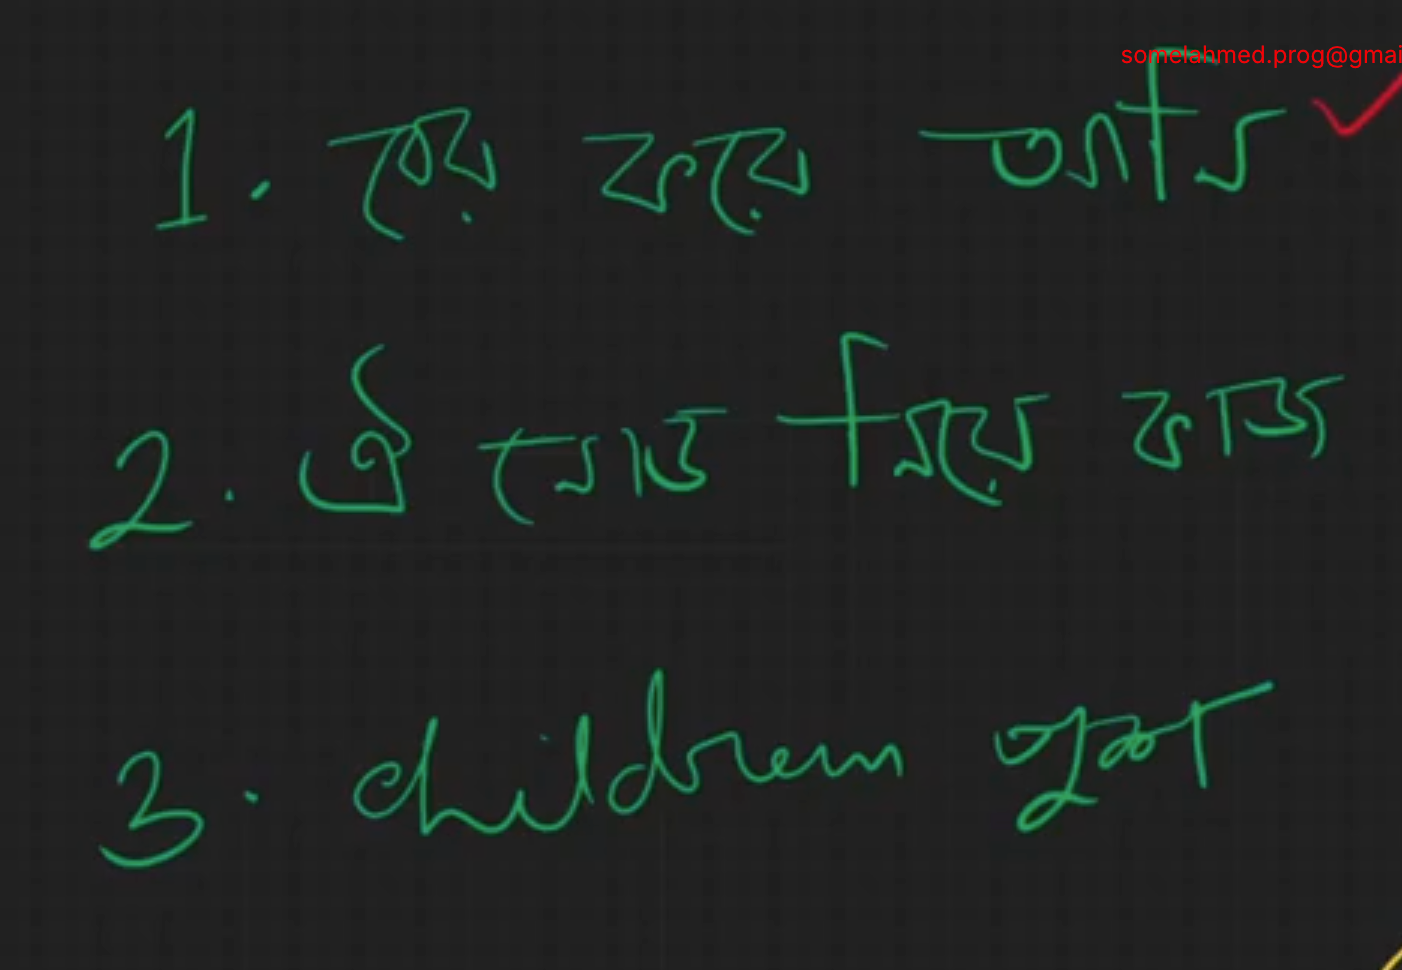 somelahmed.prog@gmai
1. বের করে আনি
2. ঐ নোড নিয়ে কাজ
3. children গুলা